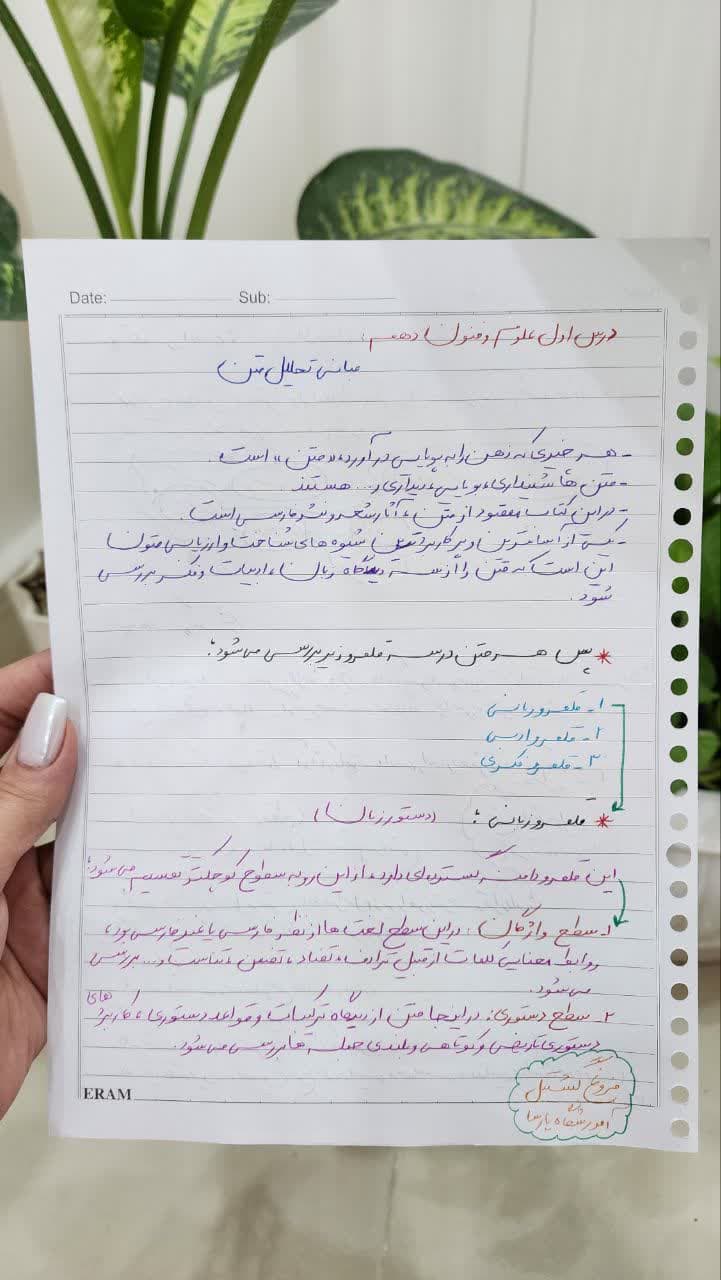 Date: Sub:
درس اول علوم و فنون دهم:
مبانی تحلیل متن
- هر چیزی که ذهن را به پویایی در آورد، «متن» است.
- متن ها شنیداری، بویایی، دیداری و... هستند
- در این کتاب، مقصود از متن، آثار شعر و نثر فارسی است.
- یکی از آسان‌ترین و پر کاربردترین شیوه های شناخت و ارزیابی متون
این است که متن را از سه دیدگاه زبان، ادبیات و فکر بررسی
شود.
* پس هر متن در سه قلمرو زیر بررسی می‌شود:
۱- قلمرو زبانی
۲- قلمرو ادبی
۳- قلمرو فکری
* قلمرو زبانی: (دستور زبان)
این قلمرو دامنه گسترده‌ای دارد، از این رو به سطوح کوچک‌تر تقسیم می‌شود:
۱- سطح واژگان: در این سطح لغت ها از نظر فارسی یا غیر فارسی بود،
روابط معنایی کلمات از قبیل ترادف، تضاد، تضمن، تناسب و... بررسی
می‌شود.
۲- سطح دستوری: در اینجا متن از دیدگاه ترکیبات و قواعد دستوری، کاربرد های
دستوری تاریخی و کوتاهی و بلندی جمله ها بررسی می‌شود.
آموزشگاه پارسا
ERAM